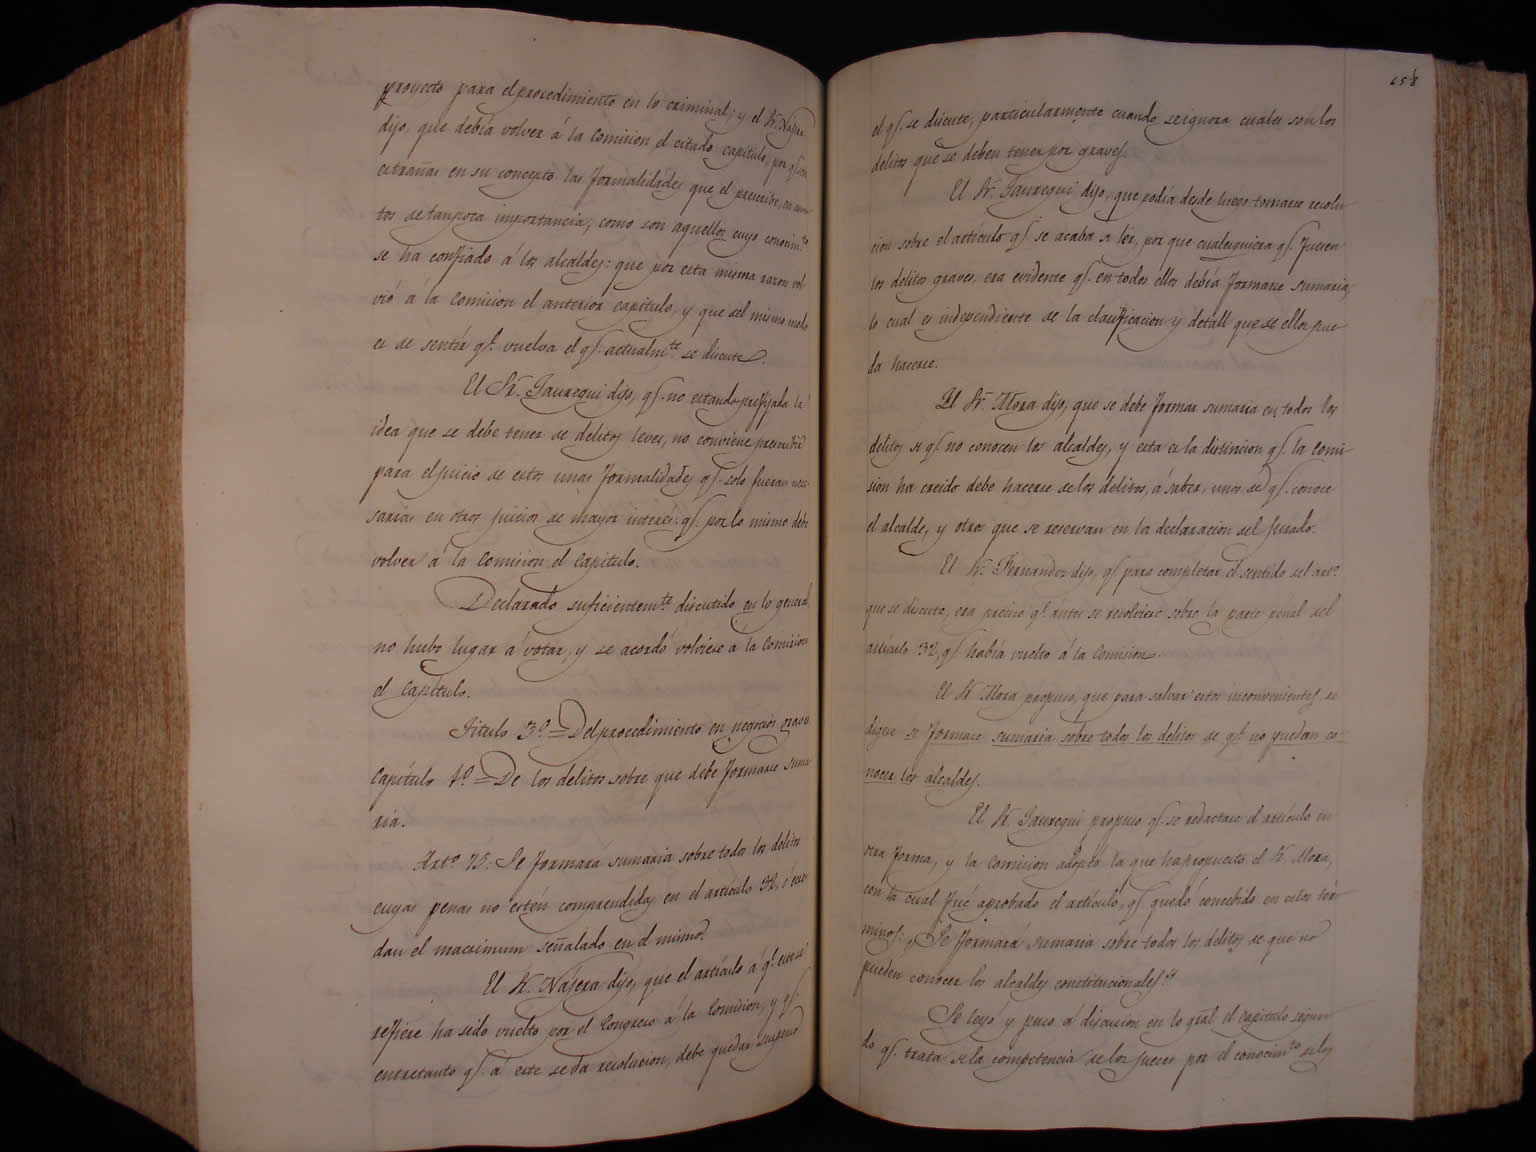 proyecto para el procedimiento en lo criminal; y el Sr. Najera
dijo, que debía volver á la Comision el citado capítulo, por qe. son
estrañas en su concepto las formalidades que el prescribe, en asun-
tos de tan poca importancia, como son aquellos cuyo conocimto.
se ha confiado á los alcaldes: que por esta misma razon vol-
vió á la Comision el anterior capítulo, y que del mismo modo
es de sentir qe. vuelva el qe. actualmte. se discute.
El Sr. Jauregui dijo, qe. no estando prefijada la
idea que se debe tener de delitos leves, no conviene prescribir
para el juicio de estos unas formalidades qe. solo fueran nece-
sarias en otros juicios de mayor interes: qe. por lo mismo debe
volver á la Comision el capítulo.
Declarado suficientemte. discutido en lo general
no hubo lugar á votar, y se acordó volviese á la Comision
el capítulo.
Título 3º = Del procedimiento en negocios graves
Capítulo 1º = De los delitos sobre que debe formarse suma-
ria.
Arto. 75. Se formará sumaria sobre todos los delitos
cuyas penas no estén comprendidas en el artículo 32, ó exce-
dan el maximum señalado en el mismo.
El Sr. Najera dijo, que el artículo á qe. este se
refiere ha sido vuelto por el Congreso á la Comision, y qe.
entretanto qe. á este se da resolucion, debe quedar suspenso
658
el qe. se discute, particularmente cuando se ignora cuales son los
delitos que se deben tener por graves.
El Sr. Jauregui dijo, que podia desde luego tomarse resolu-
cion sobre el artículo qe. se acaba de leer, por que cualesquiera qe. fuesen
los delitos graves, era evidente qe. en todos ellos debía formarse sumaria,
lo cual es independiente de la clasificacion y detall que de ellos pue-
da hacerse.
El Sr. Mora dijo, que se debe formar sumaria en todos los
delitos de qe. no conocen los alcaldes, y esta es la distincion qe. la Comi-
sion ha creido debe hacerse de los delitos, á saber, unos de qe. conoce
el alcalde, y otros que se reservan en la declaracion del Jurado.
El Sr. Fernandez dijo, qe. para completar el sentido del arto.
que se discute, era preciso qe. ántes se resolviese sobre la parte penal del
artículo 32, qe. había vuelto á la Comision.
El Sr. Mora propuso, que para salvar estos inconvenientes, se
digese se formase sumaria sobre todos los delitos de qe. no puedan co-
nocer los alcaldes.
El Sr. Jauregui propuso qe. se redactase el artículo en
otra forma, y la Comision adoptó la que ha propuesto el Sr. Mora,
con la cual fué aprobado el artículo, qe. quedó concebido en estos tér-
minos: „Se formará sumaria sobre todos los delitos de que no
pueden conocer los alcaldes constitucionales."
Se leyó y puso á discusion en lo gral el capítulo segun-
do qe. trata de la competencia de los jueces por el conocimto. de los